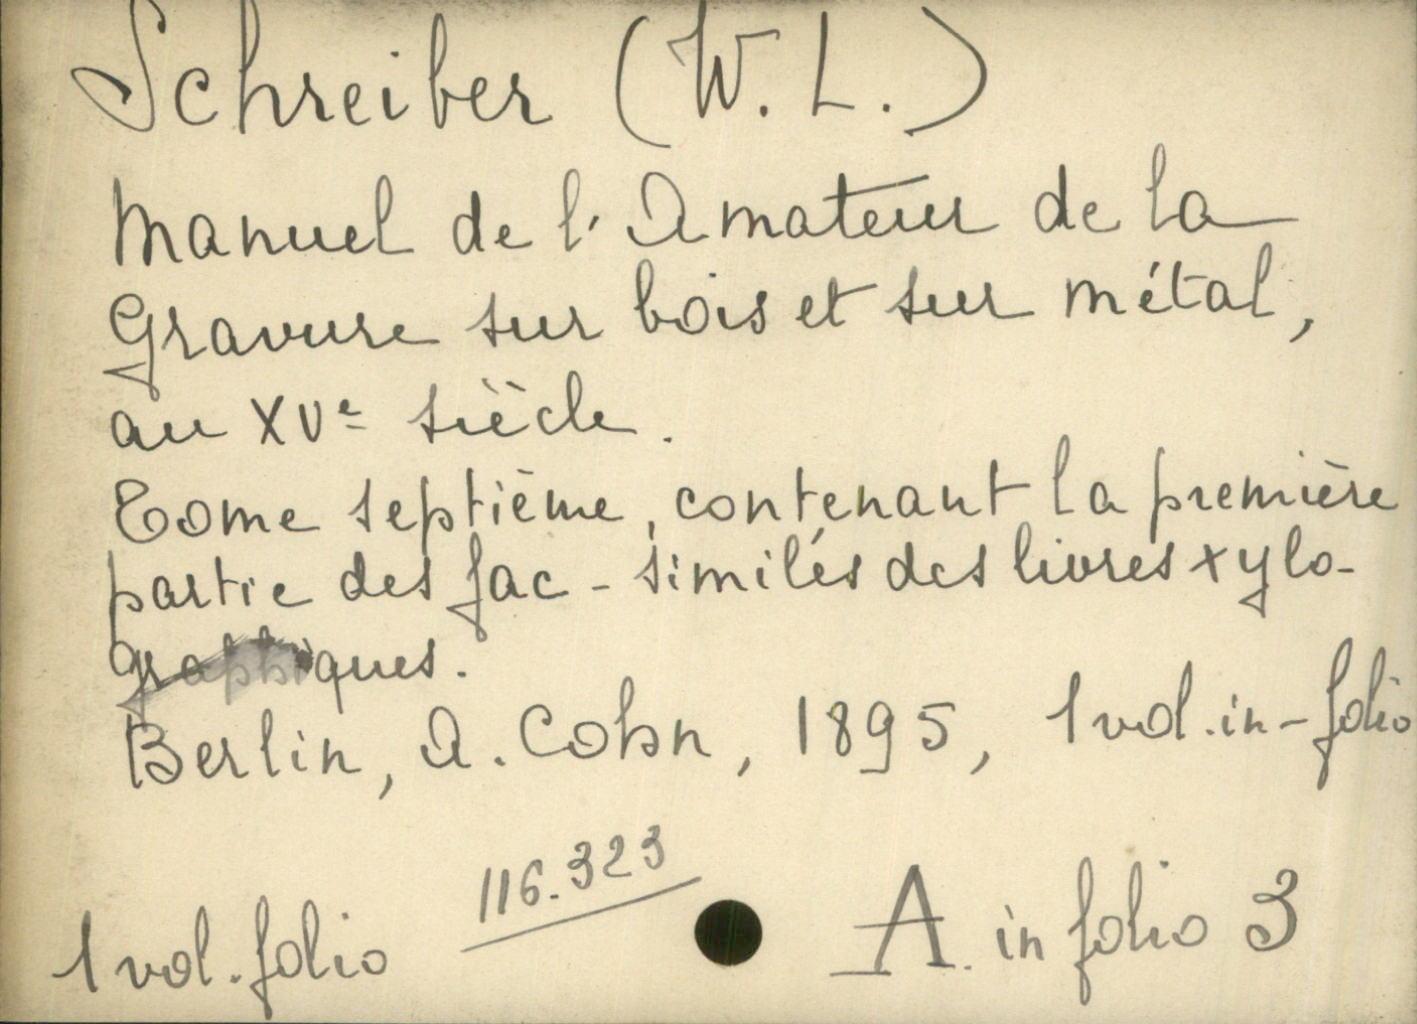 Schreiber (W. L.)
Manuel de l'Amateur de la
Gravure sur bois et sur métal,
au XVe siècle.
Tome septième, contenant la première
partie des fac-similés des livres xylo-
graphiques.
Berlin, A. Cohn, 1895, 1 vol. in-folio
116.323
1 vol. folio
A. in folio 3